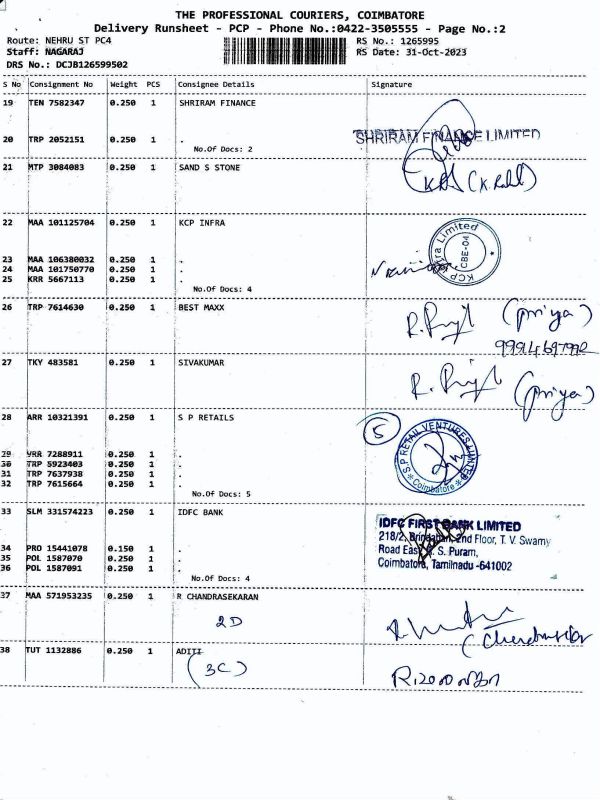 THE PROFESSIONAL COURIERS, COIMBATORE
Delivery Runsheet - PCP - Phone No.:0422-3505555 - Page No.:2
Route: NEHRU ST PC4 RS No.: 1265995
Staff: NAGARAJ RS Date: 31-Oct-2023
DRS No.: DCJB126599502
S No Consignment No Weight PCS Consignee Details Signature
19 TEN 7582347 0.250 1 SHRIRAM FINANCE
20 TRP 2052151 0.250 1 . SHRIRAM FINANCE LIMITED
No.Of Docs: 2
21 MTP 3084083 0.250 1 SAND S STONE
22 MAA 101125704 0.250 1 KCP INFRA
23 MAA 106380032 0.250 1 .
24 MAA 101750770 0.250 1 .
25 KRR 5667113 0.250 1 .
No.Of Docs: 4
KCP Infra Limited
CBE-04
26 TRP 7614630 0.250 1 BEST MAXX
(priya)
27 TKY 483581 0.250 1 SIVAKUMAR
(priya)
28 ARR 10321391 0.250 1 S P RETAILS
5
29 VRR 7288911 0.250 1 .
30 TRP 5923403 0.250 1 .
31 TRP 7637938 0.250 1 .
32 TRP 7615664 0.250 1 .
No.Of Docs: 5
S P RETAIL VENTURES LIMITED
Coimbatore
33 SLM 331574223 0.250 1 IDFC BANK
34 PRO 15441078 0.150 1 .
35 POL 1587070 0.250 1 .
36 POL 1587091 0.250 1 .
No.Of Docs: 4
IDFC FIRST BANK LIMITED
218/2, Brindavan, 2nd Floor, T. V. Swamy
Road East, R. S. Puram,
Coimbatore, Tamilnadu -641002
37 MAA 571953235 0.250 1 R CHANDRASEKARAN
2D
38 TUT 1132886 0.250 1 ADITI
(3C)